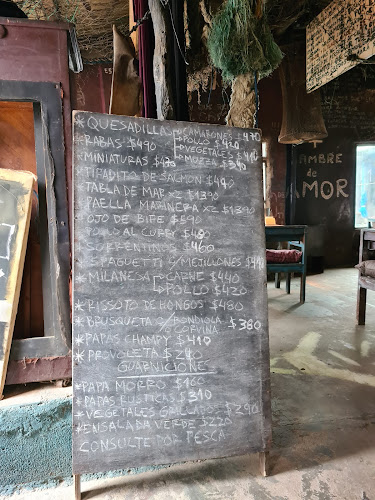 * QUESADILLA → CAMARONES $470
→ POLLO $420
→ VEGETALES $410
→ MOZZA $340
* RABAS $490
* MINIATURAS $430
* TIRADITO DE SALMON $440
* TABLA DE MAR X2 $1390
* PAELLA MARINERA X2 $1390
* OJO DE BIFE $590
* POLLO AL CURRY $480
* SORRENTINOS $460
* SPAGUETTI C/ MEJILLONES $440
* MILANESA → CARNE $440
→ POLLO $420
* RISSOTO DE HONGOS $480
* BRUSQUETA C/ BONDIOLA
CORVINA $380
* PAPAS CHAMPY $410
* PROVOLETA $240
GUARNICIONES
* PAPA MORRO $160
* PAPAS RUSTICAS $310
* VEGETALES GRILLADOS $290
* ENSALADA VERDE $220
CONSULTE POR PESCA
AMBRE
de
AMOR